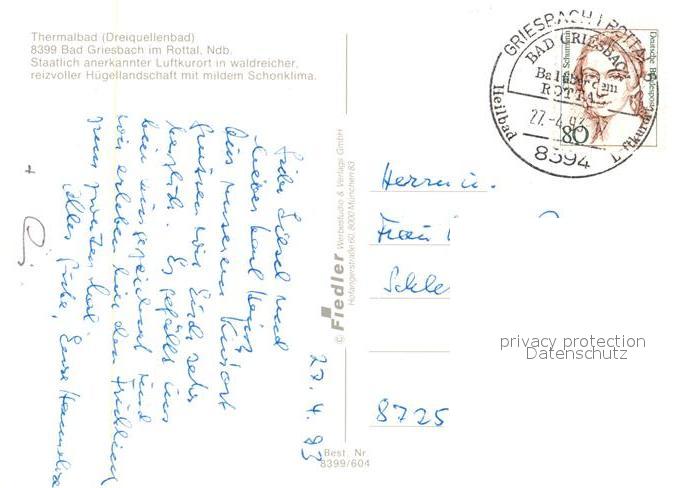 Thermalbad (Dreiquellenbad)
8399 Bad Griesbach im Rottal, Ndb.
Staatlich anerkannter Luftkurort in waldreicher,
reizvoller Hügellandschaft mit mildem Schonklima.
GRIESBACH I ROTTAL
BAD GRIESBACH
ROTTAL
27.-4.93
Heilbad
Luftkurort
8394
Deutsche Bundespost
Schumann
80
27.4.93
Liebe Liesel und
lieber Karl Heinz
Aus unserem Kurort
grüßen wir Euch sehr
herzlich. Es gefällt uns
hier ausgezeichnet und
wir erleben hier den Frühling
zum zweiten Mal
Alles Liebe, Eure
© Fiedler Werbestudio & Verlags GmbH
Hofangerstraße 60, 8000 München 83
Best. Nr.
8399/604
Herrn u.
Frau
Schle
8725
privacy protection
Datenschutz